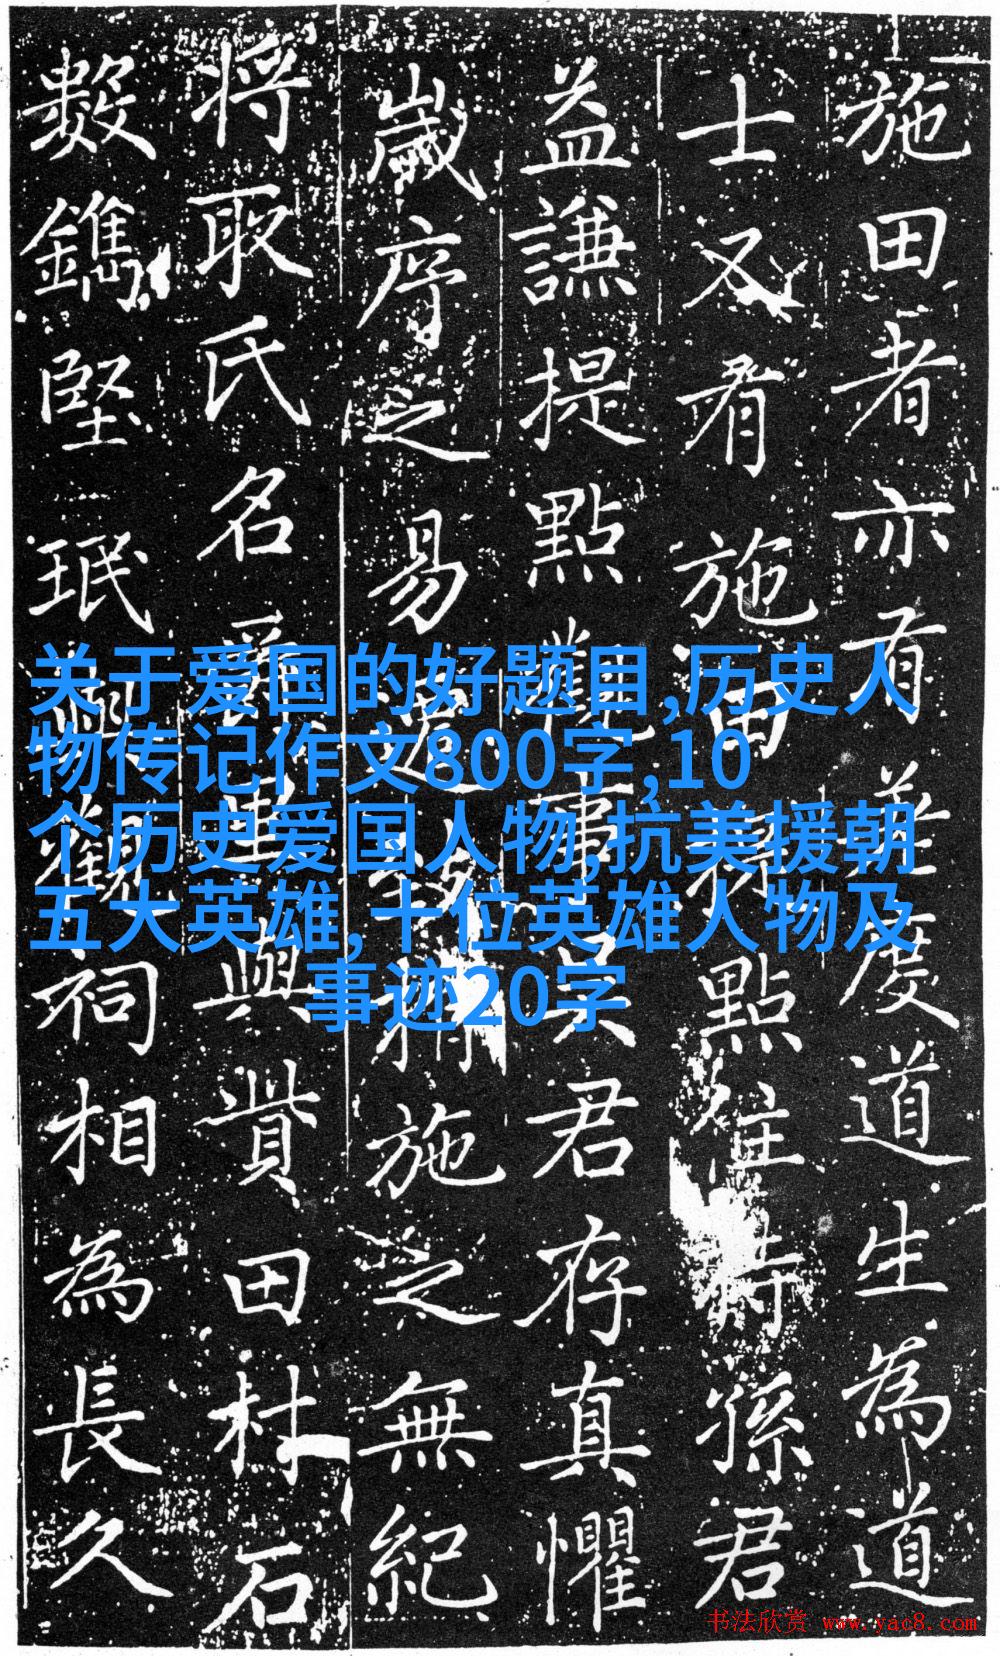 施田者亦有度道生為道
士又施田點住持孫君
益謙提點觀事吳君存真懼
歲序之易施之無紀
將取氏名與貲田杜石
數鐫堅珉與觀祠相為長久
关于爱国的好题目,历史人
物传记作文800字,10
个历史爱国人物,抗美援朝
五大英雄,十位英雄人物及
事迹20字
书法欣赏 www.yac8.com